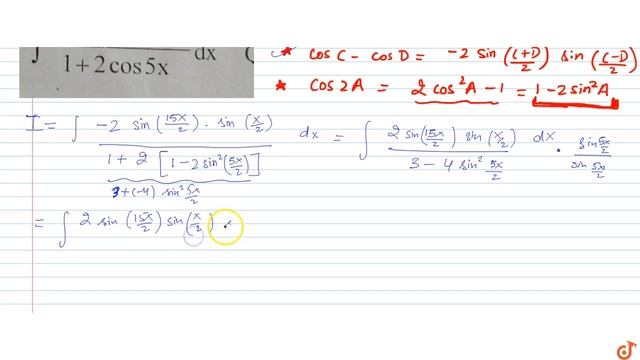 ∫ ――― dx (
1 + 2 cos 5x
* cos C - cos D = -2 sin ((C+D)/2) sin ((C-D)/2)
* cos 2A = 2 cos²A - 1 = 1 - 2 sin²A
I = ∫ (-2 sin (15x/2) · sin (x/2)) / (1 + 2 [1 - 2 sin² (5x/2)]) dx = ∫ (2 sin (15x/2) sin (x/2)) / (3 - 4 sin² 5x/2) dx · (sin 5x/2) / (sin 5x/2)
3 + (-4) sin² 5x/2
= ∫ 2 sin (15x/2) sin (x/2) ×